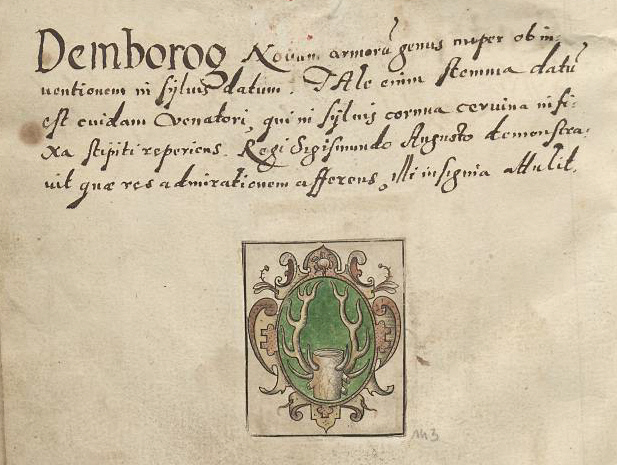 Demborog Novum armorū genus nuper ob in-
uentionem in sÿluis datum. Tale enim stemma datū
est cuidam Venatori, qui ni sÿluis cornua ceruina infi-
xa stipiti reperiens. Regi Sigismundo Augusto demonstra-
uit quæ res admirationem afferens, illi insignia attulit.
143